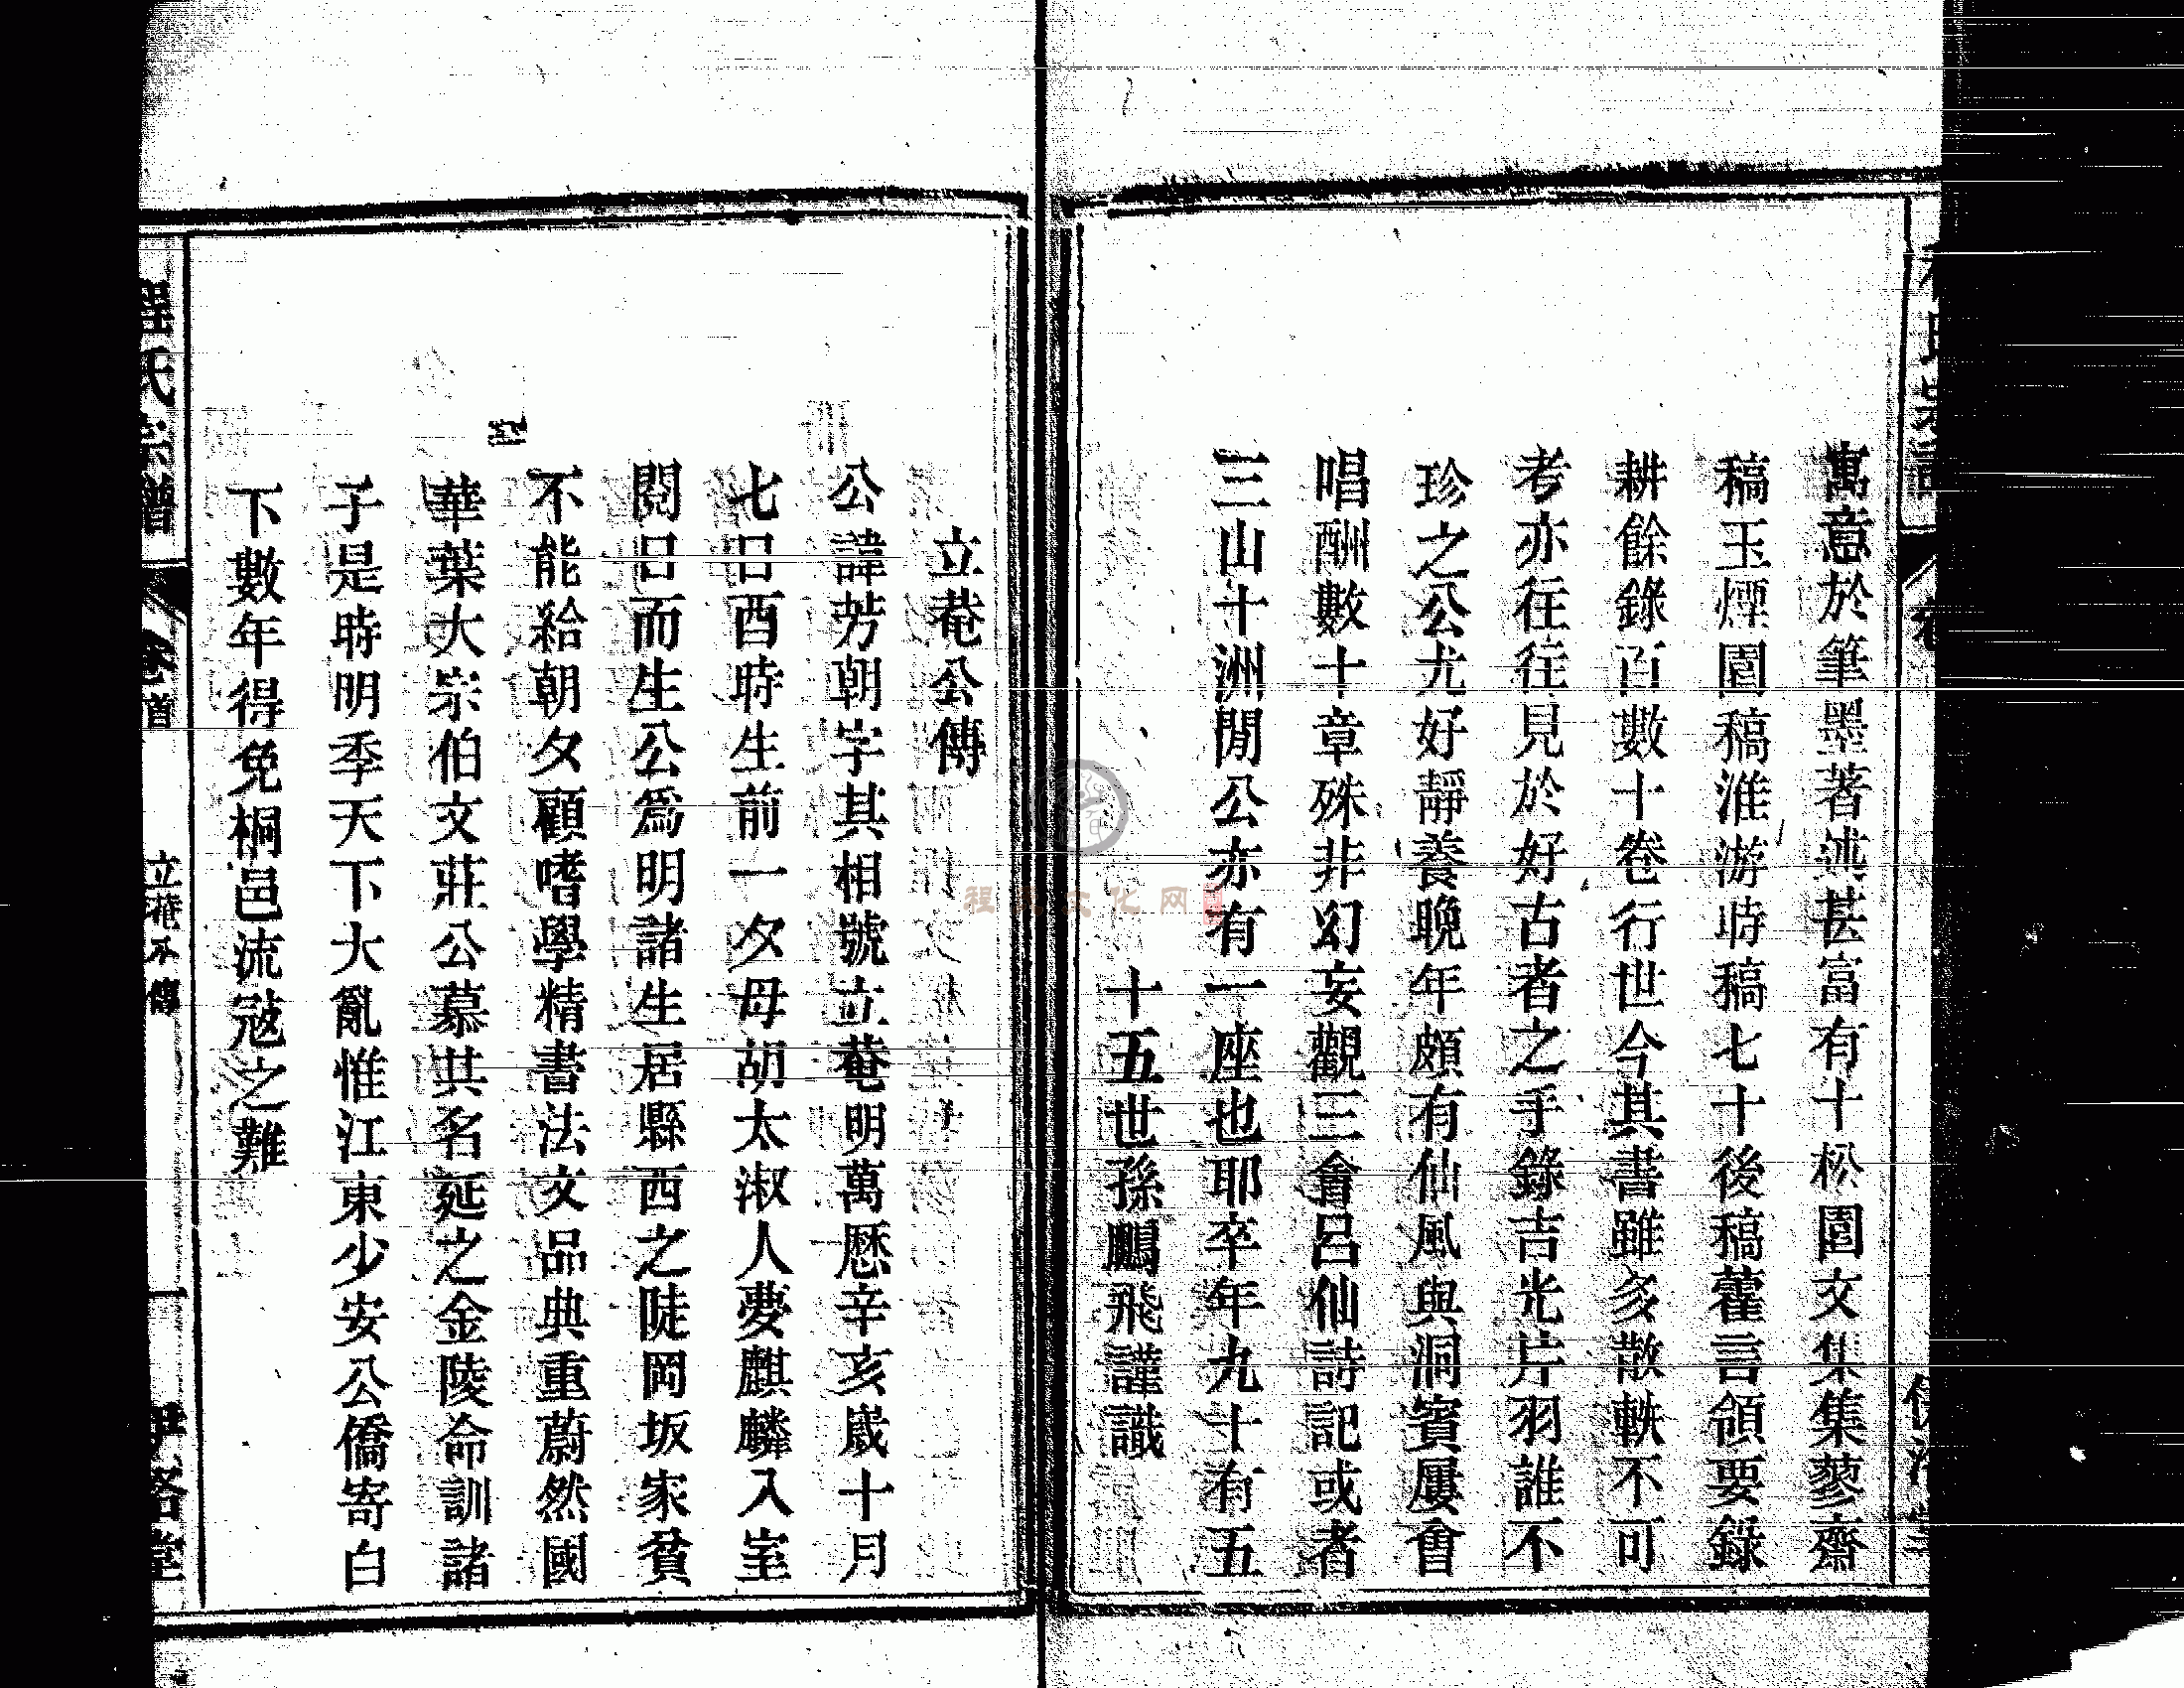 寓意於筆墨著述甚富有十松園文集集蓼齋
稿玉煙園稿淮游時稿七十後稿藿言領要錄
耕餘錄百數十卷行世今其書雖多散軼不可
考亦往往見於好古者之手錄吉光片羽誰不
珍之公尤好靜養晚年頗有仙風與洞賓屢會
唱酬數十章殊非幻妄觀三會呂仙詩記或者
三山十洲閒公亦有一座也耶卒年九十有五
十五世孫鵬飛謹識
立菴公傳
公諱芳朝字其相號立菴明萬曆辛亥歲十月
七日酉時生前一夕母胡太淑人夢麒麟入室
閱日而生公爲明諸生居縣西之陡岡坂家貧
不能給朝夕顧嗜學精書法文品典重蔚然國
華葉大宗伯文莊公慕其名延之金陵命訓諸
子是時明季天下大亂惟江東少安公僑寄白
下數年得免桐邑流寇之難
程氏宗譜 卷首 立菴公傳 一 伊洛堂
程氏文化网